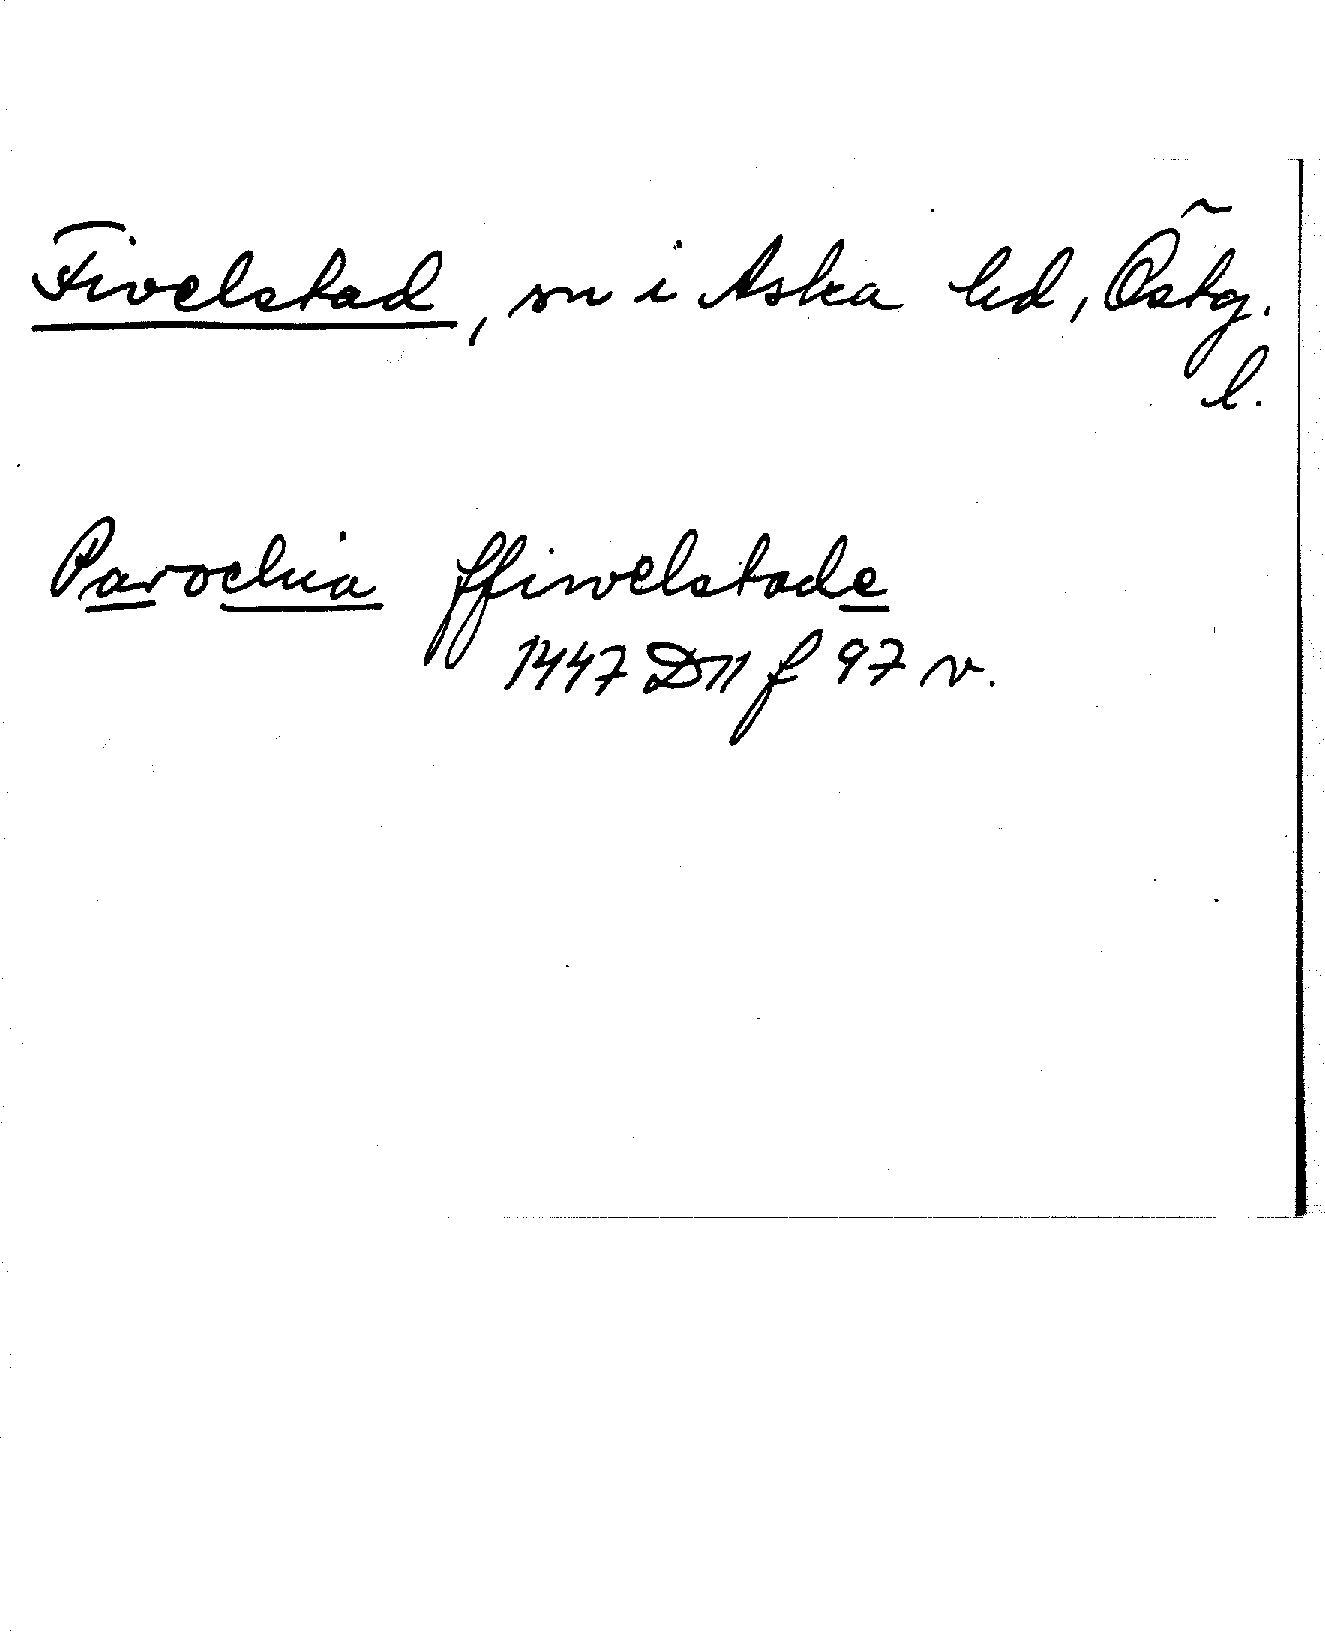 Fivelstad, sn i Aska hd, Östg.
l.
Parochia ffiwelstade
1447 D11 f 97 v.